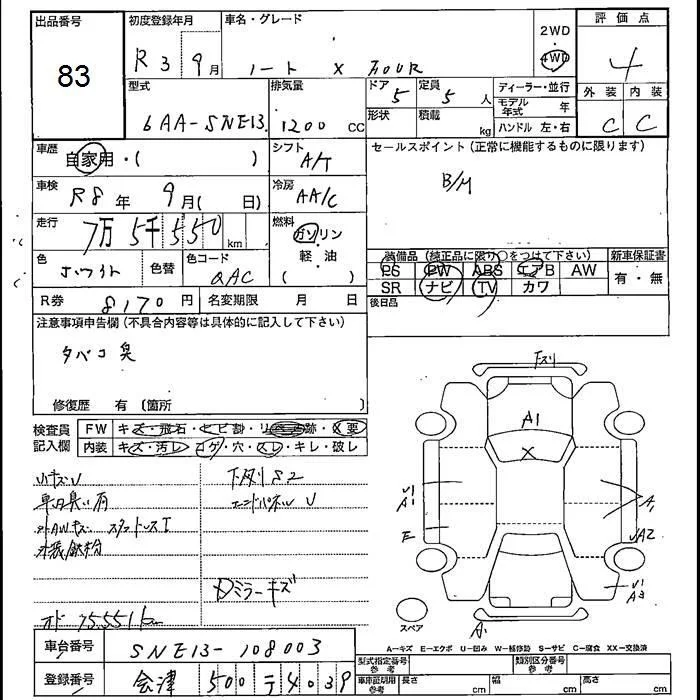 出品番号
83
初度登録年月
R 3 9月
車名・グレード
ノート X FOUR
2WD
4WD
評価点
4
外装 内装
C C
型式
6AA-SNE13
排気量
1200 CC
ドア 5
定員 5 人
形状
積載 kg
ディーラー・並行
モデル年式 年
ハンドル 左・右
車歴
自家用・( )
シフト
A/T
セールスポイント(正常に機能するものに限ります)
B/M
車検
R8年 9月( 日)
冷房
AA/C
走行
7万5千550km
燃料
ガソリン
軽・油
( )
色
色替
色コード
QAC
装備品(純正品に限り○をつけて下さい)
PS PW ABS エアB AW
SR ナビ TV カワ
新車保証書
有・無
後日品
R券 8170円
名変期限 月 日
注意事項申告欄(不具合内容等は具体的に記入して下さい)
タバコ臭
修復歴 有〔箇所 〕
検査員
記入欄
FW キズ・飛石・ヒビ割・リ 跡・X要
内装 キズ・汚レ・コゲ・穴・スレ・キレ・破レ
小キズU
車内臭い有
下廻りS2
エンドパネルU
ミラーキズ
オド 75551km
下スリ
A1
X
U1
A1
E
A1
UA2
U1
A2
A1
スペア
A-キズ E-エクボ U-凹み W-補修跡 S-サビ C-腐食 XX-交換済
車台番号
SNE13-108003
登録番号
会津 500 テ 4039
型式指定番号
参考
類別区分番号
参考
車庫証明用
参考
長さ cm
幅 cm
高さ cm